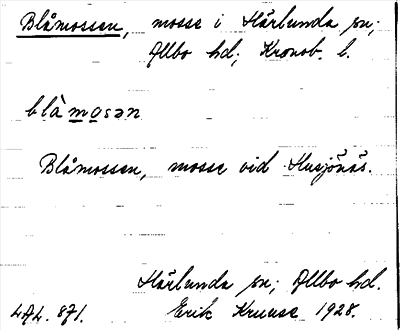 Blåmossen, mosse i Härlunda sn;
Allbo hd; Kronob. l.
blàmosən
Blåmossen, mosse vid Husjönäs.
Härlunda sn; Allbo hd.
LAL. 871. Erik Kruuse 1928.